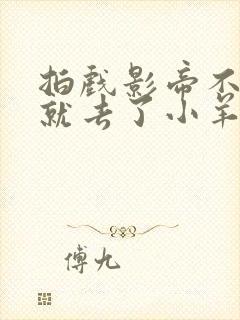 拍戏影帝不
就去了小羊
傅九